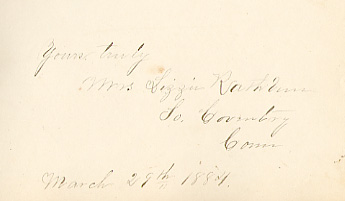 Yours truly
Mrs Lizzie Rathbun
So. Coventry
Conn
March 29th 1884.